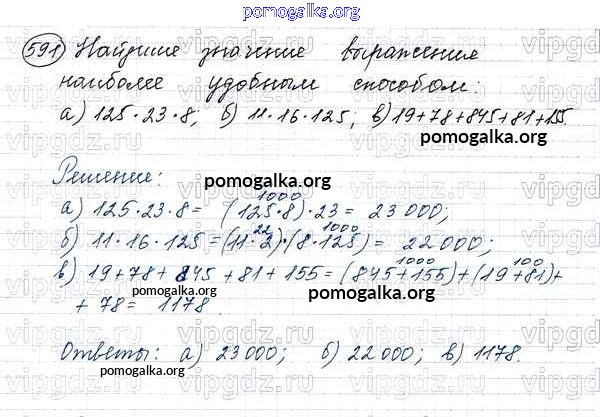 pomogalka.org
591 Найдите значение выражения
наиболее удобным способом:
а) 125·23·8; б) 11·16·125; в) 19+78+845+81+155.
pomogalka.org
Решение:
pomogalka.org
1000
а) 125·23·8= (125·8)·23= 23 000;
22 1000
б) 11·16·125=(11·2)·(8·125)= 22 000;
1000 100
в) 19+78+845+81+155=(845+155)+(19+81)+
+ 78= 1178
pomogalka.org pomogalka.org
Ответы: а) 23 000; б) 22 000; в) 1178.
pomogalka.org
vipgdz.ru